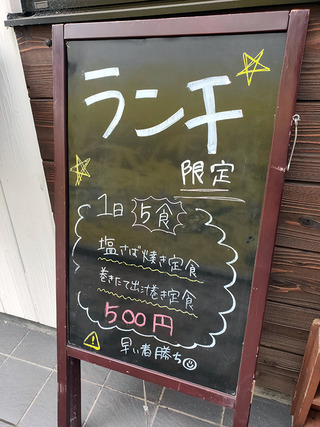 ランチ
限定
1日 5食
塩さば焼き定食
巻きたて出汁巻き定食
500円
早い者勝ち